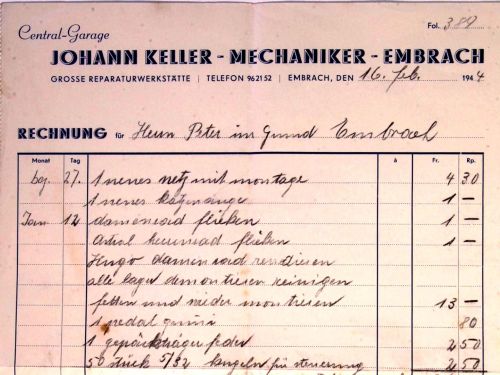 Central-Garage Fol. 389
JOHANN KELLER - MECHANIKER - EMBRACH
GROSSE REPARATURWERKSTÄTTE | TELEFON 962152 | EMBRACH, DEN 16. feb. 1944
RECHNUNG für Herrn Peter im grund Embrach
Monat Tag à Fr. Rp.
27. 1 neues netz mit montage 4 30
1 neues 1 —
Jan 12 damenrad flicken 1 —
flicken 1 —
Hugo damenrad
alle lager demontieren reinigen
fetten und wieder montieren 13 —
1 pedal gumi 80
1 gepäckträger feder 2 50
50 stück 5/32 kugeln für steuerung 2 50